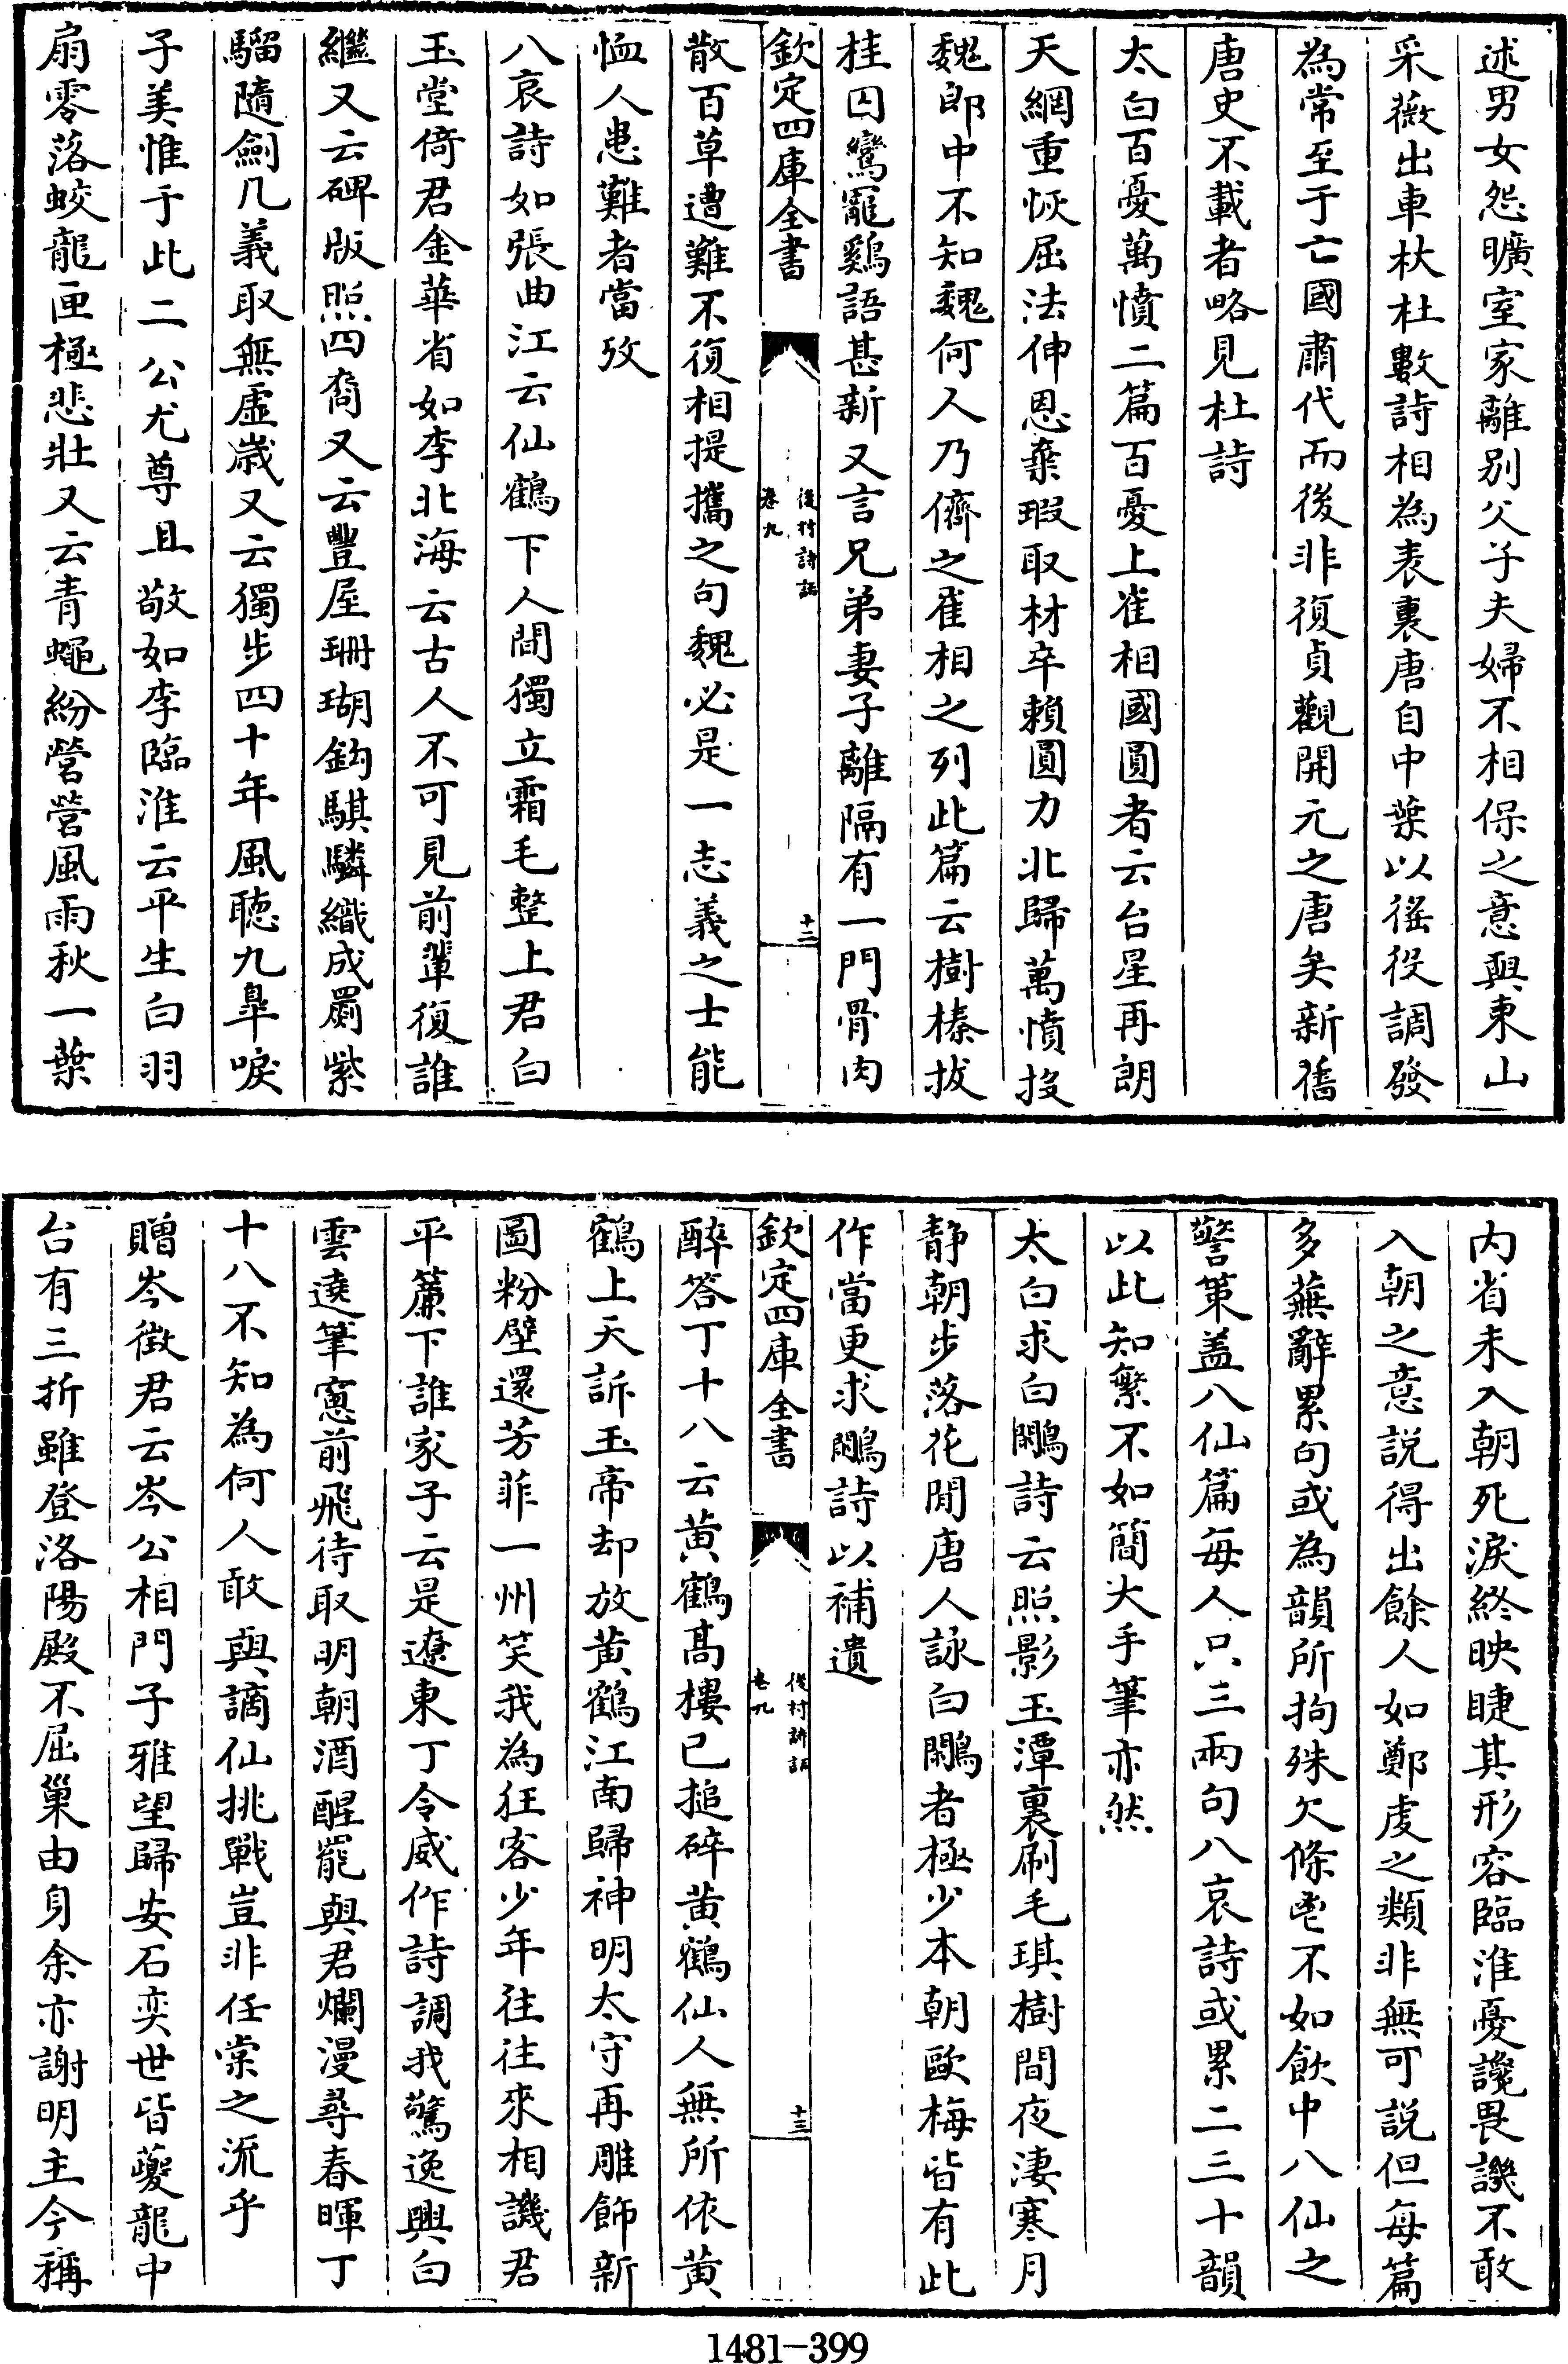 述男女怨曠室家離别父子夫婦不相保之意與東山
采薇出車杕杜數詩相為表裏唐自中葉以徭役調發
為常至于亡國肅代而後非復貞觀開元之唐矣新舊
唐史不載者略見杜詩
太白百憂萬憤二篇百憂上崔相國圓者云台星再朗
天網重恢屈法伸恩棄瑕取材卒賴圓力北歸萬憤投
魏郎中不知魏何人乃儕之崔相之列此篇云樹榛拔
桂囚鸞寵鷄語甚新又言兄弟妻子離隔有一門骨肉
欽定四庫全書
後村詩話
卷九
十二
散百草遭難不復相提攜之句魏必是一志義之士能
恤人患難者當攷
八哀詩如張曲江云仙鶴下人間獨立霜毛整上君白
玉堂倚君金華省如李北海云古人不可見前輩復誰
繼又云碑版照四裔又云豐屋珊瑚鈎騏驎織成罽紫
騮隨劍几義取無虛歲又云獨步四十年風聽九臯唳
子美惟于此二公尤尊且敬如李臨淮云平生白羽
扇零落蛟龍匣極悲壯又云青蠅紛營營風雨秋一葉
内省未入朝死淚終映睫其形容臨淮憂讒畏譏不敢
入朝之意説得出餘人如鄭虔之類非無可説但每篇
多蕪辭累句或為韻所拘殊欠條鬯不如飲中八仙之
警策盖八仙篇每人只三兩句八哀詩或累二三十韻
以此知繁不如簡大手筆亦然
太白求白鷴詩云照影玉潭裏刷毛琪樹間夜淒寒月
静朝步落花閒唐人詠白鷴者極少本朝歐梅皆有此
作當更求鷴詩以補遺
欽定四庫全書
後村詩話
卷九
十三
醉答丁十八云黄鶴髙樓已搥碎黄鶴仙人無所依黄
鶴上天訴玉帝却放黄鶴江南歸神明太守再雕飾新
圖粉壁還芳菲一州笑我為狂客少年往往來相譏君
平簾下誰家子云是遼東丁令威作詩調我驚逸興白
雲遶筆窻前飛待取明朝酒醒罷與君爛漫尋春暉丁
十八不知為何人敢與謫仙挑戰豈非任棠之流乎
贈岑徴君云岑公相門子雅望歸安石奕世皆夔龍中
台有三折雖登洛陽殿不屈巢由身余亦謝明主今稱
1481-399